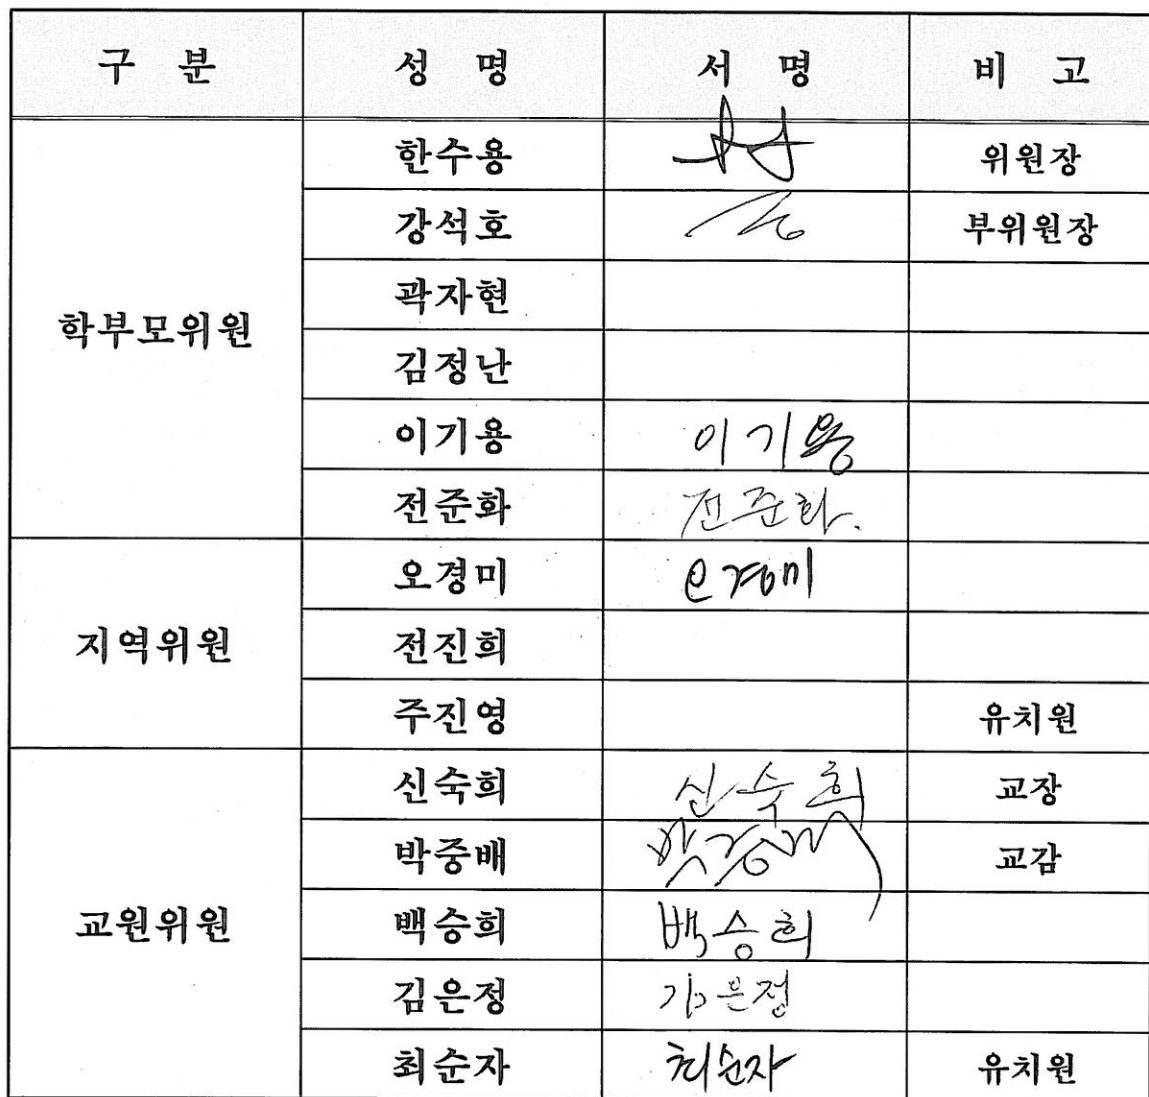 구 분 성 명 서 명 비 고
학부모위원
한수용 위원장
강석호 부위원장
곽자현
김정난
이기용 이기용
전준화 전준화.
지역위원
오경미 오경미
전진희
주진영 유치원
교원위원
신숙희 신숙희 교장
박중배 교감
백승희 백승희
김은정 김은정
최순자 최순자 유치원